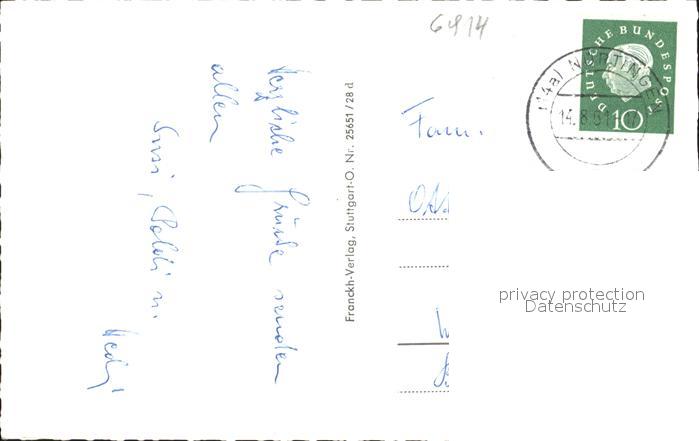 6914
DEUTSCHE BUNDESPOST
10
(14a) NÜRTINGEN
14.8.61
Herzliche Grüße senden
allen
Susi, Poldi u.
Hedy
Franckh-Verlag, Stuttgart-O. Nr. 25651/28 d
Fam.
privacy protection
Datenschutz